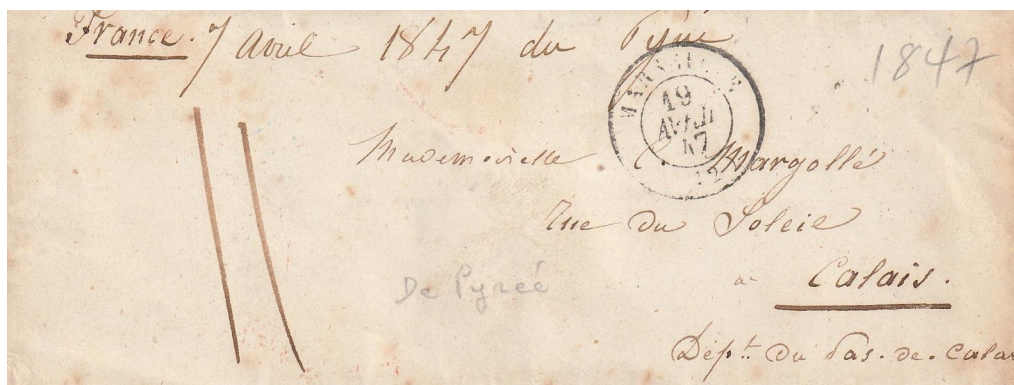 France. 7 avril 1847 du Pyrée
1847
MARSEILLE
19
AVRIL
47
Mademoiselle C. Margollé
Rue du Soleil
De Pyreé
a Calais.
Dépt. du Pas-de-Calais